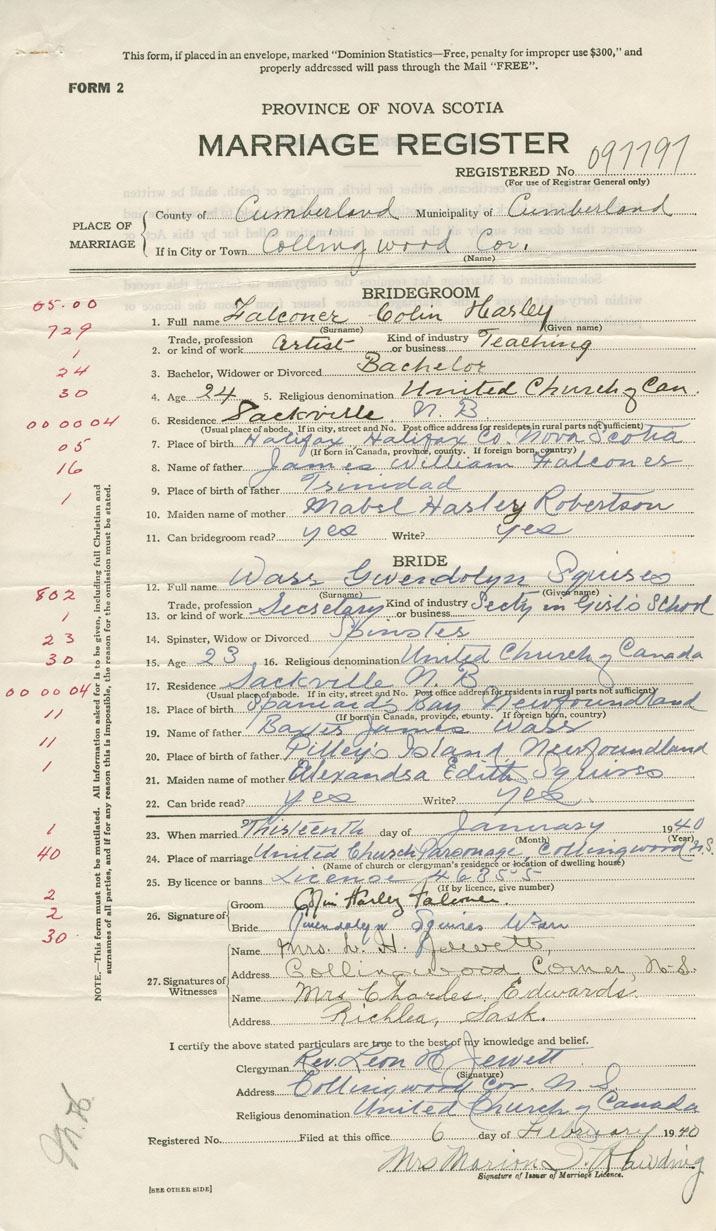 This form, if placed in an envelope, marked "Dominion Statistics—Free, penalty for improper use $300," and
properly addressed will pass through the Mail "FREE".
FORM 2
PROVINCE OF NOVA SCOTIA
MARRIAGE REGISTER
REGISTERED No. 097797
(For use of Registrar General only)
PLACE OF MARRIAGE
County of Cumberland Municipality of Cumberland
If in City or Town Collingwood Cor.
(Name)
BRIDEGROOM
65.00
1. Full name Falconer Colin Harley
(Surname) (Given name)
729
2. Trade, profession or kind of work Artist Kind of industry or business Teaching
1
3. Bachelor, Widower or Divorced Bachelor
24
4. Age 24 5. Religious denomination United Church of Can.
30
6. Residence Sackville N. B.
(Usual place of abode. If in city, street and No. Post office address for residents in rural parts not sufficient)
00 00 04
7. Place of birth Halifax, Halifax Co. Nova Scotia
(If born in Canada, province, county. If foreign born, country)
05
8. Name of father James William Falconer
16
9. Place of birth of father Trinidad
10. Maiden name of mother Mabel Harley Robertson
1
11. Can bridegroom read? yes Write? yes
BRIDE
12. Full name Wass Gwendolyn Squires
(Surname) (Given name)
802
13. Trade, profession or kind of work Secretary Kind of industry or business Secty in Girl's School
1
14. Spinster, Widow or Divorced Spinster
23
15. Age 23 16. Religious denomination United Church of Canada
30
17. Residence Sackville N. B
(Usual place of abode. If in city, street and No. Post office address for residents in rural parts not sufficient)
00 00 04
18. Place of birth Spaniards Bay Newfoundland
(If born in Canada, province, county. If foreign born, country)
11
19. Name of father James Wass
11
20. Place of birth of father Pilley's Island Newfoundland
1
21. Maiden name of mother Alexandra Edith Squires
22. Can bride read? yes Write? yes
1
23. When married Thirteenth day of January 1940
(Month) (Year)
40
24. Place of marriage United Church Parsonage, Collingwood N.S.
(Name of church or clergyman's residence or location of dwelling house)
25. By licence or banns License 46355
(If by licence, give number)
2
2
30
26. Signature of
Groom Colin Harley Falconer
Bride Gwendolyn Squires Wass
27. Signatures of Witnesses
Name Mrs. L. H. Jewett,
Address Collingwood Corner, N.S.
Name Mrs Charles Edwards
Address Richlea, Sask.
I certify the above stated particulars are true to the best of my knowledge and belief.
Clergyman Rev. Leon H. Jewett
(Signature)
Address Collingwood Cor N S.
Religious denomination United Church of Canada
Registered No. Filed at this office 6 day of February 1940
Mrs Marion
Signature of Issuer of Marriage Licence.
[SEE OTHER SIDE]
NOTE.—This form must not be mutilated. All information asked for is to be given, including full Christian and
surnames of all parties, and if for any reason this is impossible, the reason for the omission must be stated.